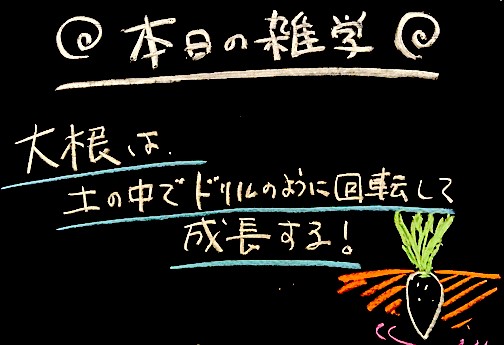 本日の雑学
大根は
土の中でドリルのように回転して
成長する!